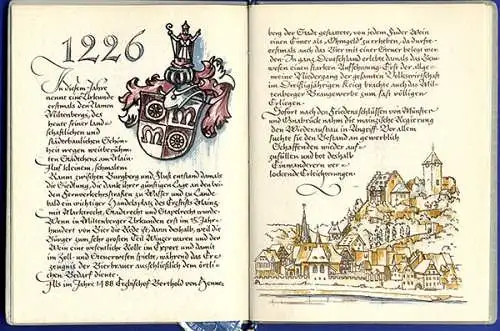 1226
In diesem Jahre
nennt eine Urkunde
erstmals den Namen
Miltenbergs, des
heute seiner land-
schaftlichen und
städtebaulichen Schön-
heit wegen weitberühm-
ten Städtchens am Main.
Auf kleinem, schmalem
Raum zwischen Burgberg und Fluß entstand damals
die Siedlung, die dank ihrer günstigen Lage an den bei-
den Fernverkehrsstraßen zu Wasser und zu Lande
bald ein wichtiger Handelsplatz des Erzstifts Mainz
mit Marktrecht, Stadtrecht und Stapelrecht wurde.
Wenn in Miltenberger Urkunden erst im 15. Jahr-
hundert von Bier die Rede ist, dann deshalb, weil die
Bürger zum sehr großen Teil Winzer waren und der
Wein eine wesentliche Rolle im Export und damit
im Zoll- und Steuerwesen spielte, während das Er-
zeugnis der Bierbrauer ausschließlich dem örtli-
chen Bedarf diente.
Als im Jahre 1488 Erzbischof Berthold von Henne-
berg der Stadt gestattete, von jedem Fuder Wein
einen Eimer als „Ohmgeld" zu erheben, da durfte
erstmals auch das Bier mit einer Steuer belegt wer-
den. In ganz Deutschland erlebte damals das Brau-
wesen einen starken Aufschwung. Erst der allge-
meine Niedergang der gesamten Volkswirtschaft
im Dreißigjährigen Krieg brachte auch das Mil-
tenberger Braugewerbe zum fast völligen
Erliegen.
Sofort nach den Friedensschlüssen von Münster
und Osnabrück nahm die mainzische Regierung
den Wiederaufbau in Angriff. Vor allem
suchte sie den Bestand an gewerblich
Schaffenden wieder auf-
zufüllen und bot deshalb
Einwanderern ver-
lockende Erleichterungen.